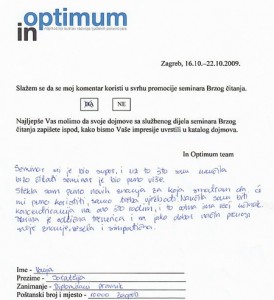 in optimum
Zagreb, 16.10.–22.10.2009.
Slažem se da se moj komentar koristi u svrhu promocije seminara Brzog čitanja.
DA NE
Najljepše Vas molimo da svoje dojmove sa službenog dijela seminara Brzog
čitanja zapišete ispod, kako bismo Vaše impresije uvrstili u katalog dojmova.
In Optimum team
Seminar mi je bio super, i uz to što sam naučila
brzo čitati seminar je bio puno više.
Stekla sam puno novih znanja za koja smatram da će
mi puno koristiti, samo treba vježbati. Naučila sam biti
koncentriranija na ono što radim, i to
je odlična i na jako dobar način prenosi
svoje znanje, vesela i simpatična.
Ime –
Prezime –
Zanimanje – Diplomirani pravnik
Poštanski broj i mjesto – 10000 Zagreb